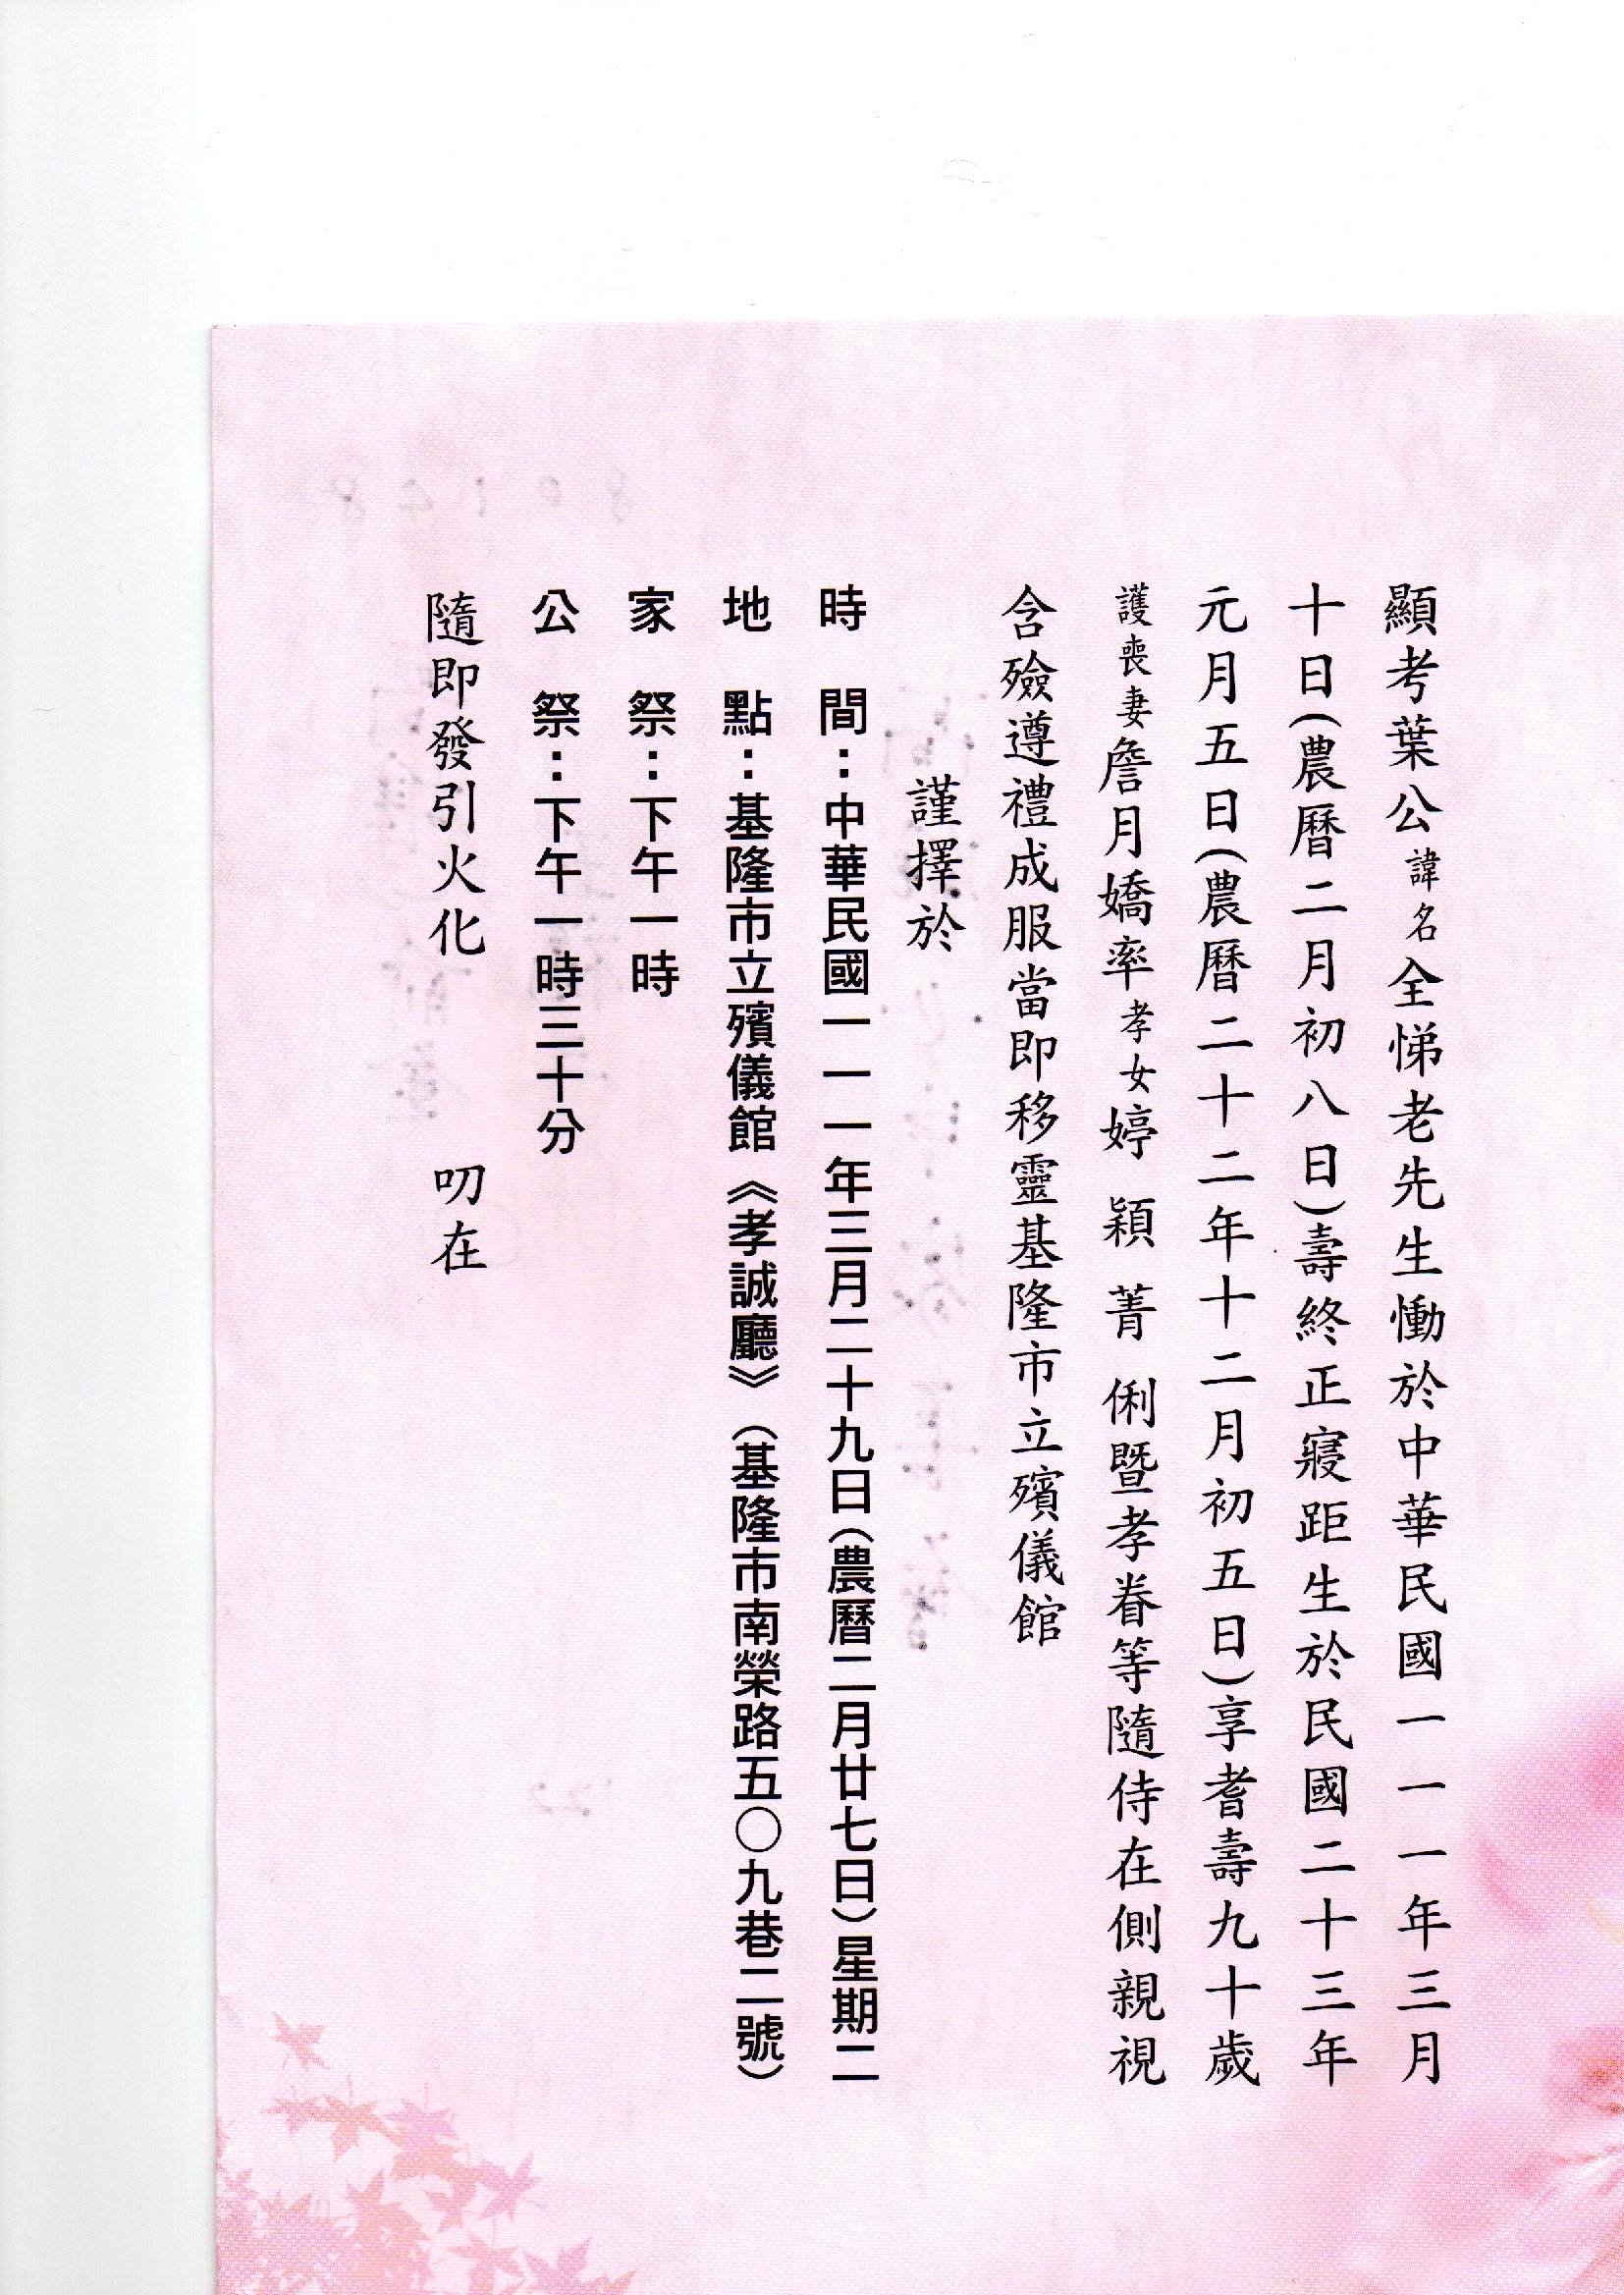 顯考葉公諱名全悌老先生慟於中華民國一一一年三月
十日(農曆二月初八日)壽終正寢距生於民國二十三年
元月五日(農曆二十二年十二月初五日)享耆壽九十歲
護喪妻詹月嬌率孝女婷 穎 菁 俐暨孝眷等隨侍在側親視
含殮遵禮成服當即移靈基隆市立殯儀館
謹擇於
時 間：中華民國一一一年三月二十九日(農曆二月廿七日)星期二
地 點：基隆市立殯儀館《孝誠廳》(基隆市南榮路五〇九巷二號)
家 祭：下午一時
公 祭：下午一時三十分
隨即發引火化 叨在